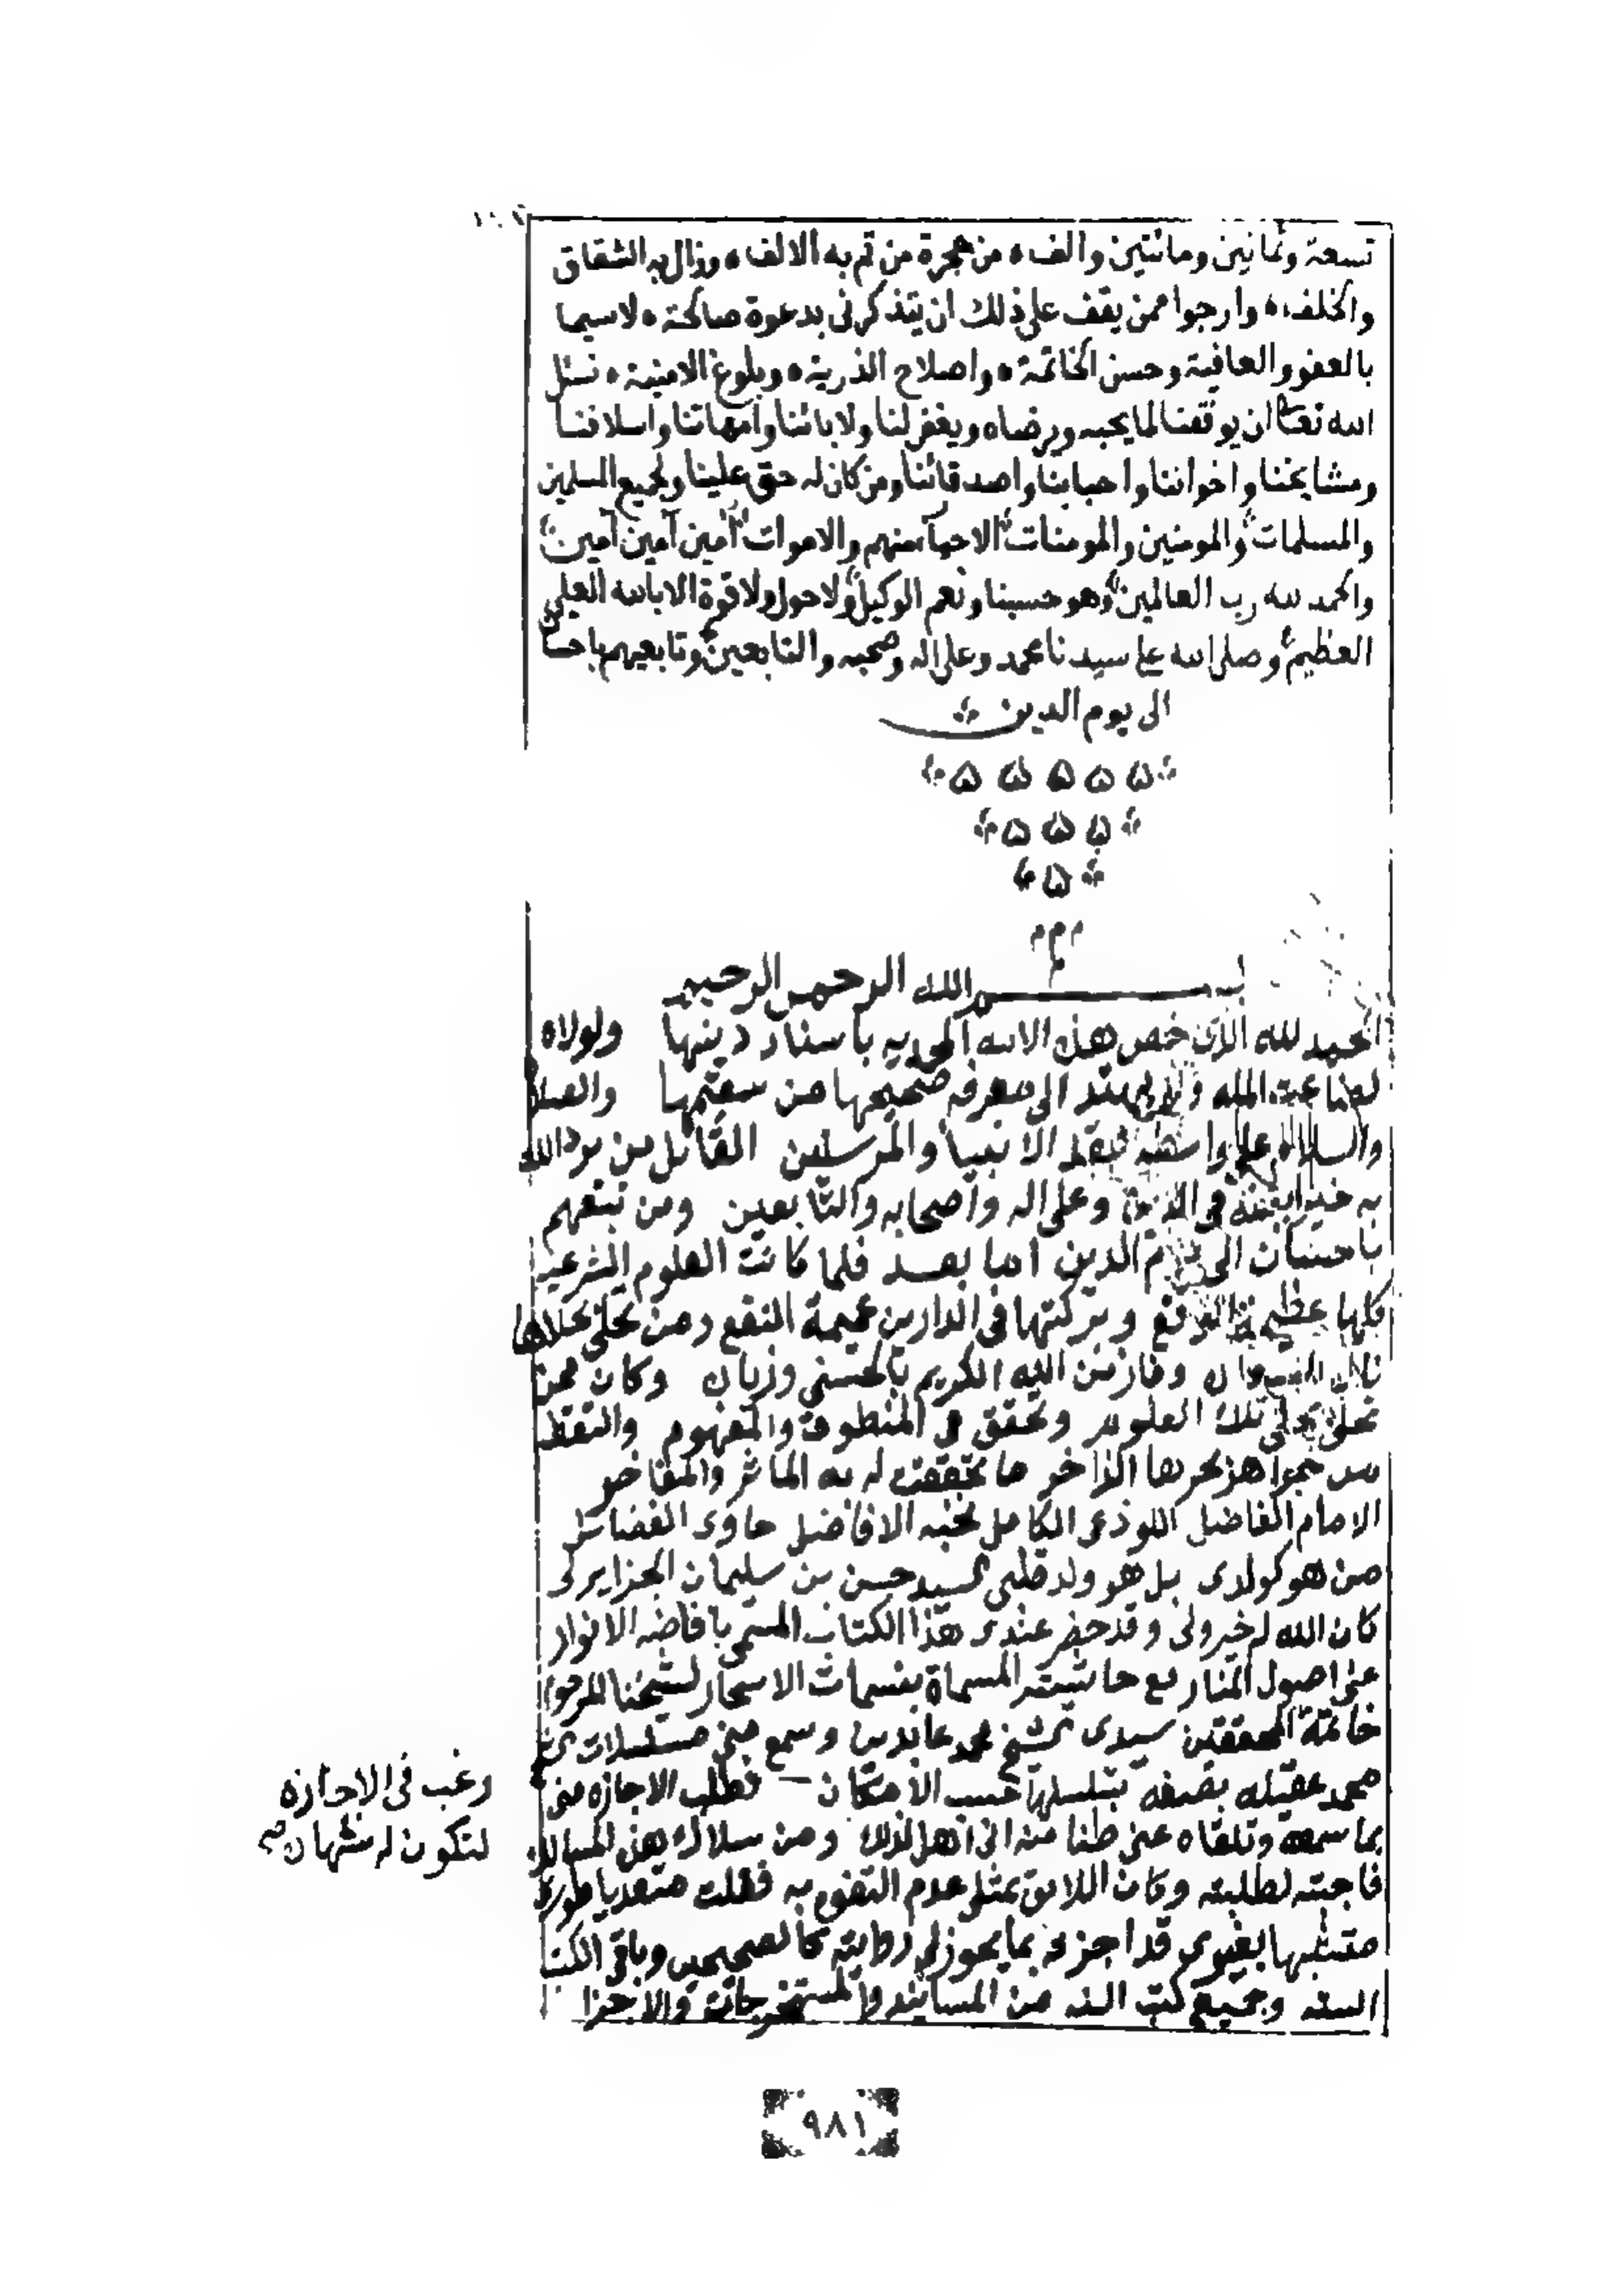 تسعة وثمانين ومائتين والف ه من هجرة من تم به الالف ه وزال به الشقاق
والخلف ه وارجوا ممن يقف على ذلك ان يتذكرنى بدعوة صالحة ه لاسيما
بالعفو والعافية وحسن الخاتمة ه واصلاح الذرية ه وبلوغ الامنية ه نسئل
الله تعالى ان يوفقنا لما يحبه ويرضاه ويغفر لنا ولابائنا وامهاتنا واسلافنا
ومشايخنا واخواننا واحبابنا واصدقائنا ومن كان له حق علينا ولجميع المسلمين
والمسلمات والمومنين والمومنات الاحياء منهم والاموات آمين آمين آمين
والحمد لله رب العالمين وهو حسبنا ونعم الوكيل ولا حول ولا قوة الا بالله العلى
العظيم وصلى الله على سيدنا محمد وعلى اله وصحبه والتابعين وتابعيهم باحسان
الى يوم الدين
ه ه ه ه ه
ه ه ه
ه
م م م
م
بسم الله الرحمن الرحيم
الحمد لله الذى خص هذه الامه المحمديه باسناد دينها ولولاه
لضاعت المله ولم يهتد الى معرفه صحيحها من سقيمها والصلاة
والسلام على واسطه عقد الانبيا والمرسلين القائل من يرد الله
به خيرا يفقهه فى الدين وعلى اله واصحابه والتابعين ومن تبعهم
باحسان الى يوم الدين اما بعد فلما كانت العلوم الشرعيه
كلها عظيمة الوقع وبركتها فى الدارين عميمة النفع ومن تحلى بحلاها
نال وفاز من الله الكريم بالحسنى وزيان وكان ممن
تحلى بحلى تلك العلوم وتحقق فى المنطوق والمفهوم والتقط
من جواهر بحرها الزاخر ما تحققت له به الماثر والمفاخر
الامام الفاضل اللوذعى الكامل نخبه الافاضل حاوى الفضائل
من هو كولدى بل هو ولد قلبى السيد حسن بن سليمان الجزايرلى
كان الله له خير ولى وقد حضر عندى هذا الكتاب المسمى بافاضه الانوار
على اصول المنار مع حاشيته المسماة بنسمات الاسحار لشيخنا المرحوم
خاتمة المحققين سيدى الشيخ محمد عابدين وسمع منى مسلسلات الشيخ
محمد عقيله بصفه تسلسلها حسب الامكان فطلب الاجازه منى
بما سمعه وتلقاه عنى ظنا منه انى اهل لذلك ومن سلاك هذه المسالك
فاجبته لطلبته وكان اللائق بمثلى عدم التفوه به فقلت متعديا طورى
متشبها بغيرى قد اجزته بما يجوز لى روايته كالصحيحين وباقى الكتب
السته وجميع كتب السنه من المسانيد والمستخرجات والاجزا
رغب فى الاجازه
لتكون له
٩٨١